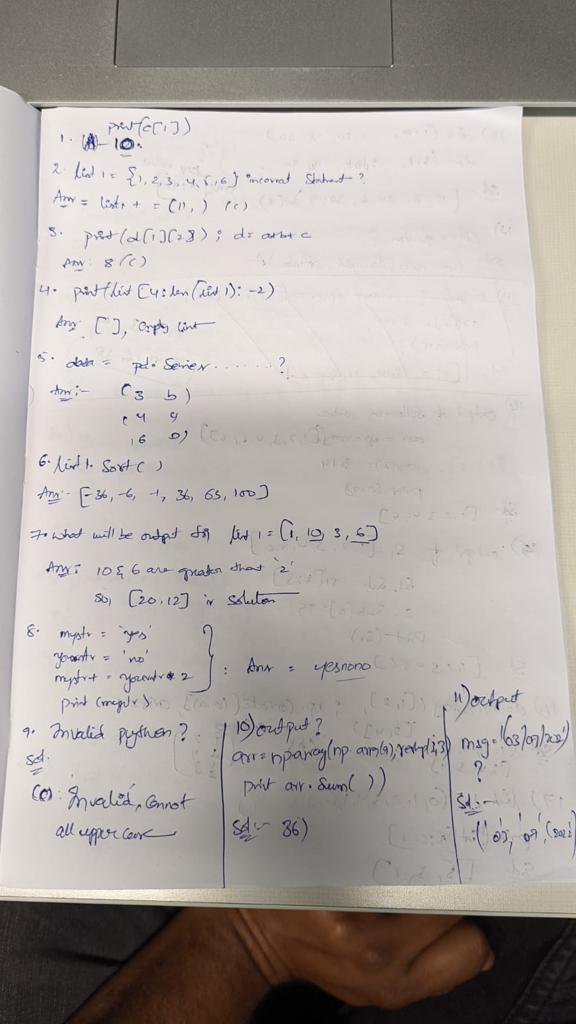 print(c[1])
1. A - 10.
2. list 1 = {1, 2, 3, 4, 5, 6} incorrect statement ?
Ans = list1 + = (11, ) (c)
3. print(d[1][2]) ; d = a+b+c
Ans: 8 (c)
4. print(list [4:len(list 1): -2)
Ans: [ ], empty list
5. data = pd. Series ....... ?
Ans:- (3 b)
6. list 1. Sort ( )
Ans:- [-36, -6, -1, 36, 63, 100]
7. what will be output of list 1 = [1, 10, 3, 6]
Ans: 10 & 6 are greater than '2'
so, [20, 12] is solution
8. mystr = 'yes'
yourstr = 'no'
mystr + = yourstr * 2
print (mystr)
: Ans = yesnono
9. Invalid python ?
Sol.
(c) : Invalid, Cannot
all upper case
10) output ?
print arr. Sum( ))
Sol:- 36)
11) output
msg =
?
Sol:-